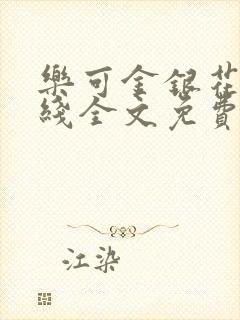 樂可金銀花
綫全文免費
江染